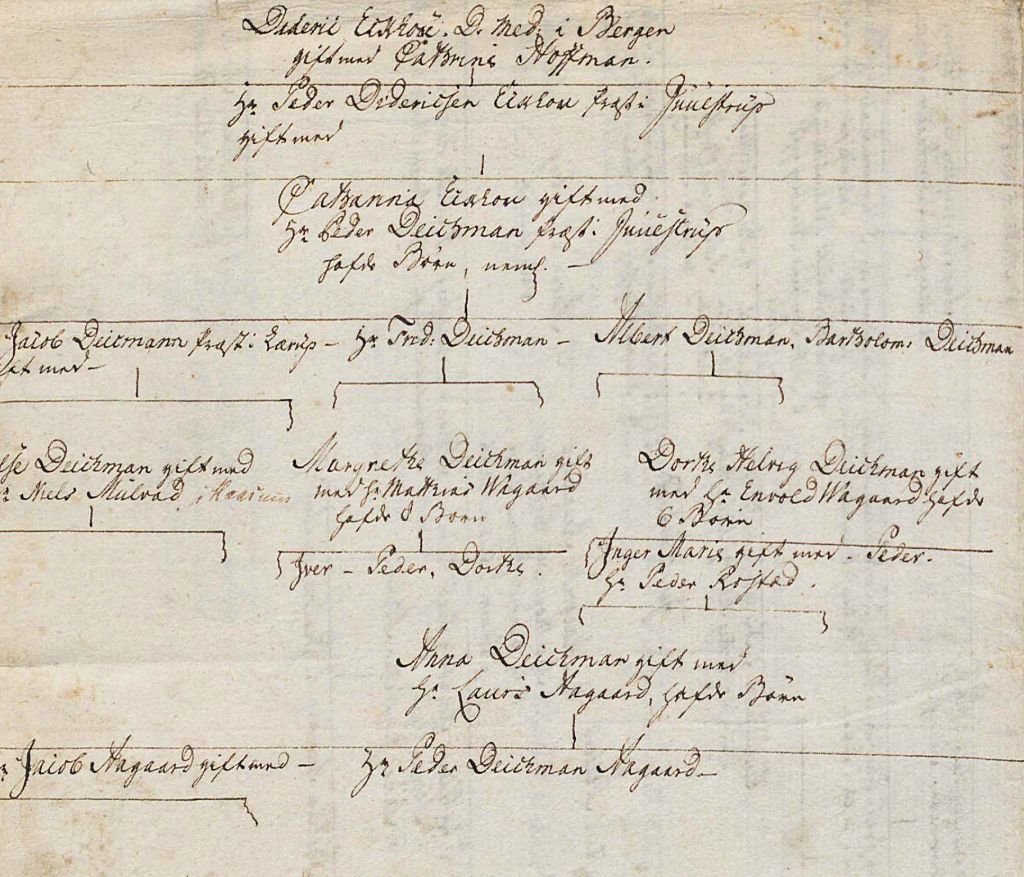 Dideric Eckhou. D. Med: i Bergen
gift med Cathrine Hoffman.
Hr Peder Diderichsen Eckhou Præst i Juuestrup
gift med
Catharina Eckhou gift med
Hr Peder Deichman Præst i Juuestrup
hafde Børn, neml. —
Jacob Deicmann Præst i Lærup — Hr Frid: Deichman — Albert Deichman. Bartholom: Deichman
gift med —
Deichman gift med
Hr Niels Mulvad
Margrethe Deichman gift
med Hr Mathias Wagaard
hafde 8 Børn
Dorthe Helvig Deichman gift
med Hr Envold Wagaard hafde
6 Børn
Iver — Peder, Dorthe.
Inger Marie gift med — Peder.
Hr Peder Rostæd.
Anna Deichman gift med
Hr Lauris Aagaard, hafde Børn
Jacob Aagaard gift med — Hr Peder Deichman Aagaard —